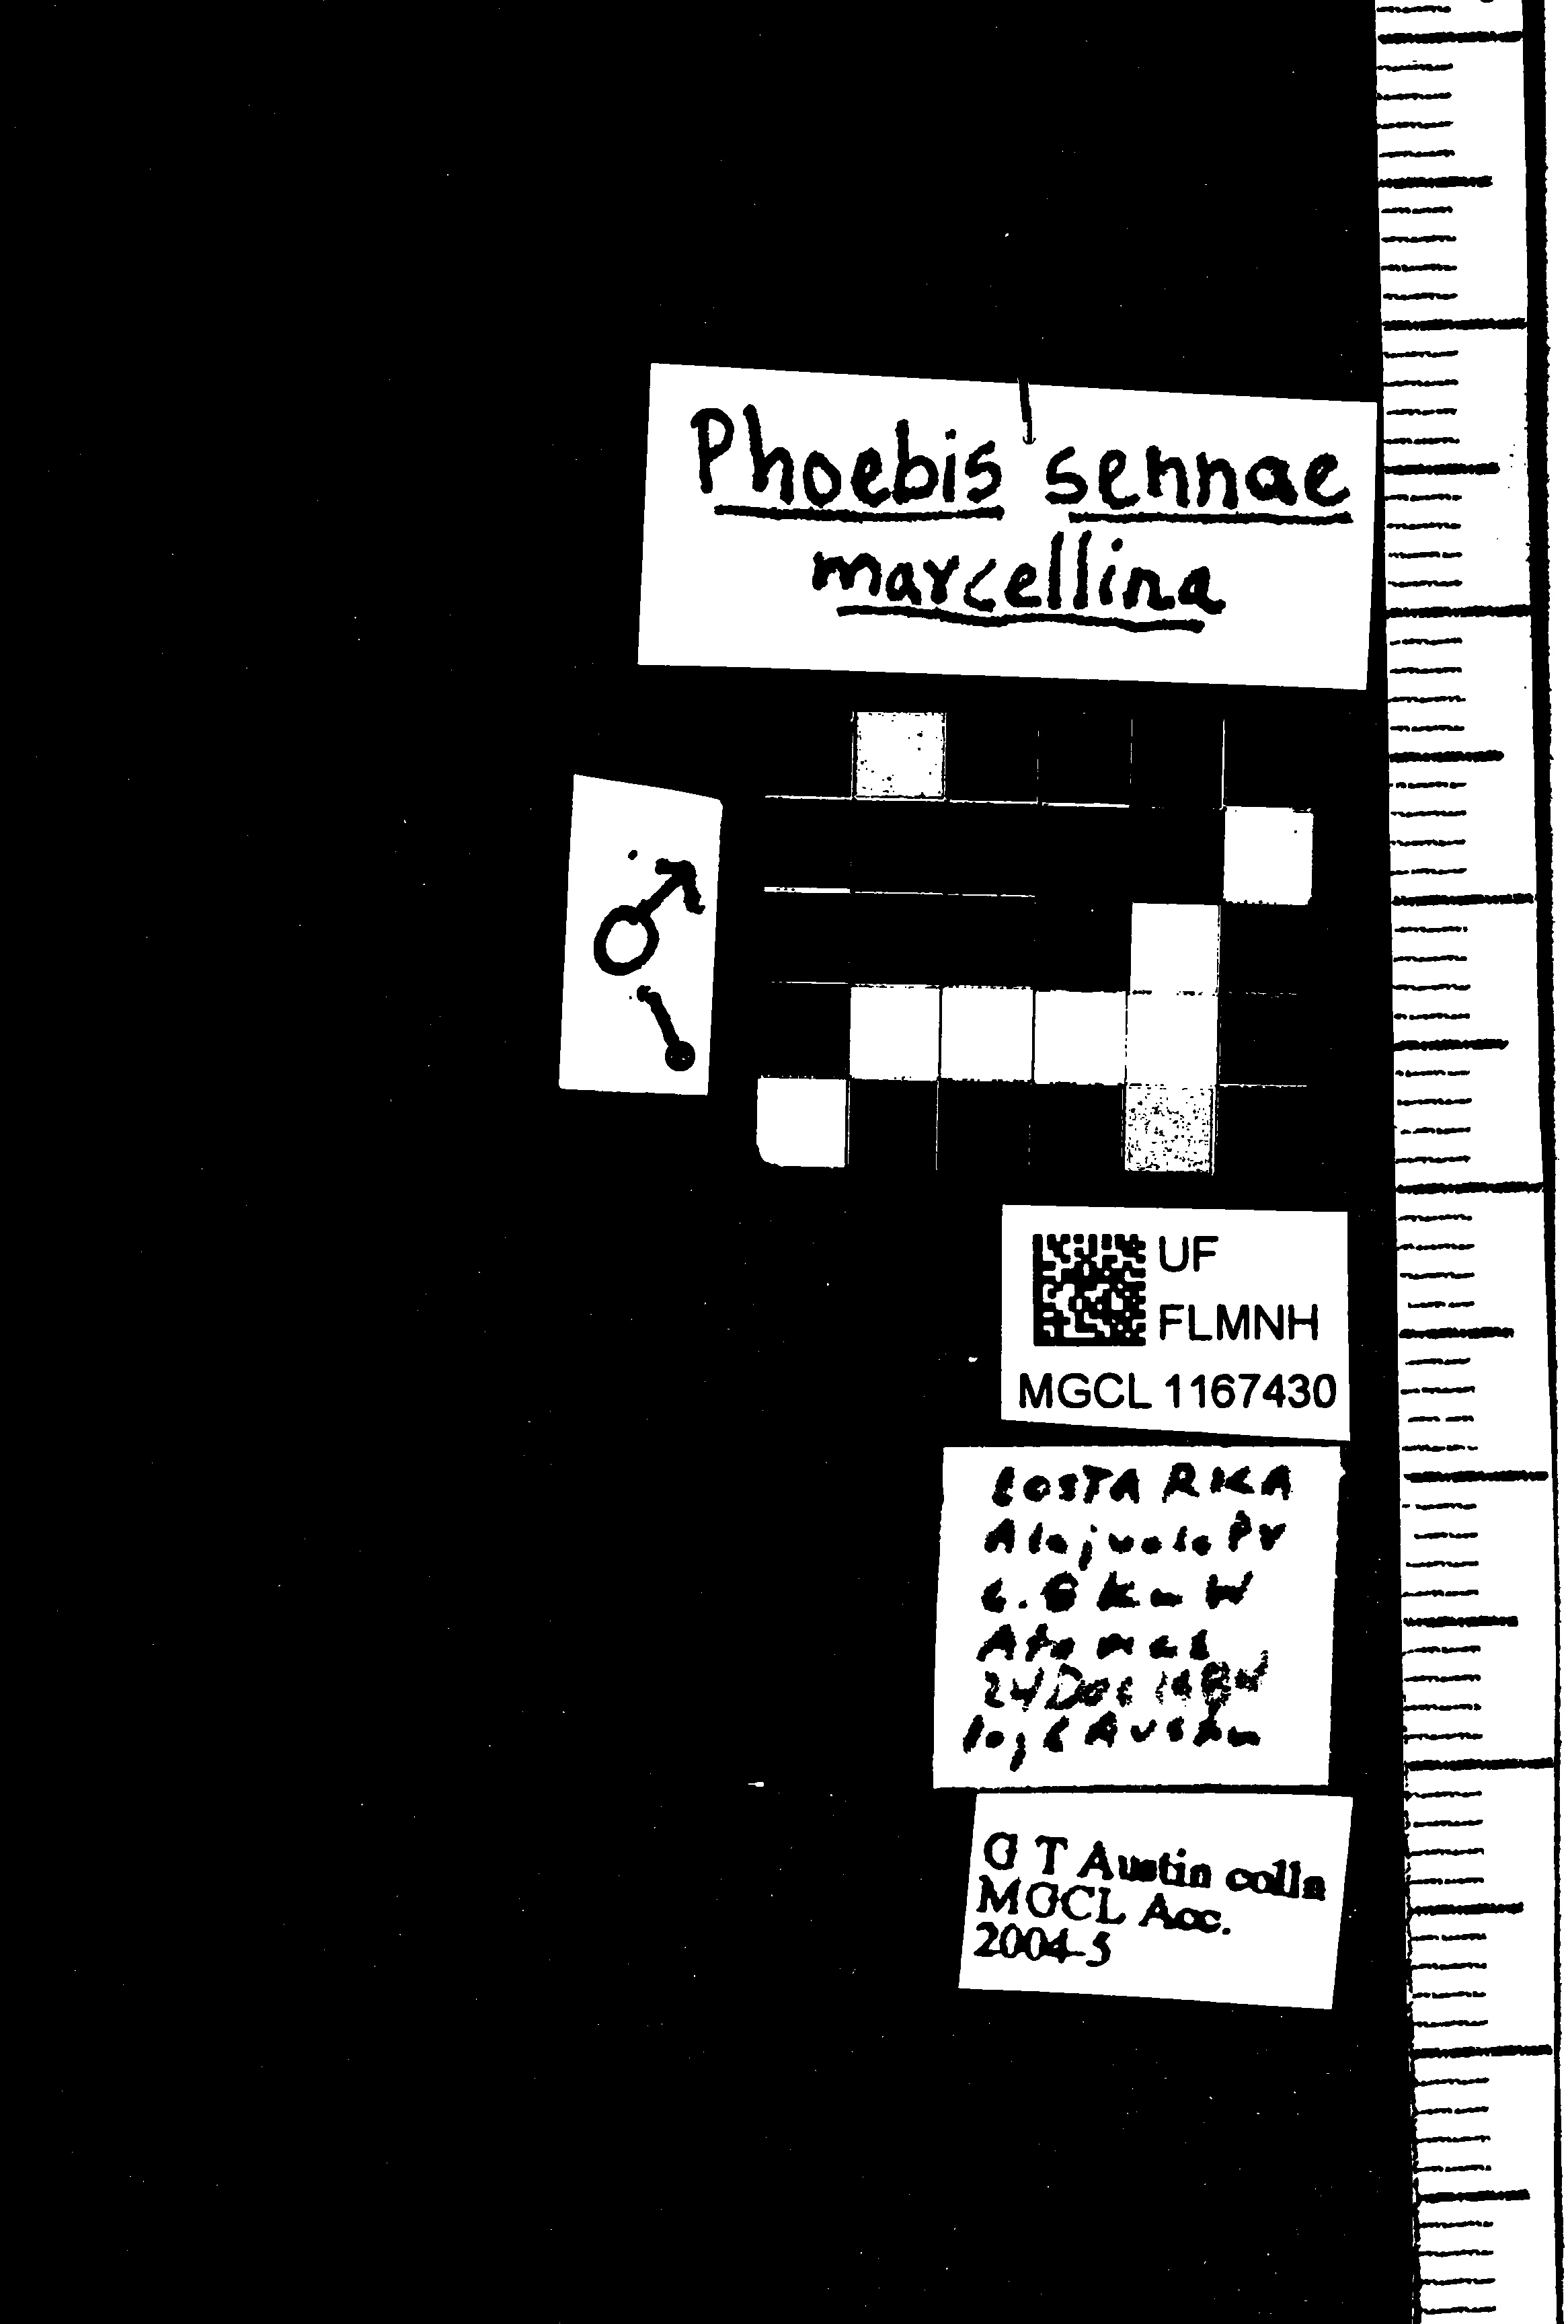 Phoebis sennae
marcellina
♂
UF
FLMNH
MGCL 1167430
COSTA RICA
Alajuela Pv
Km W
24 Dec
Austin
G T Austin colln
MGCL Acc.
2004-5